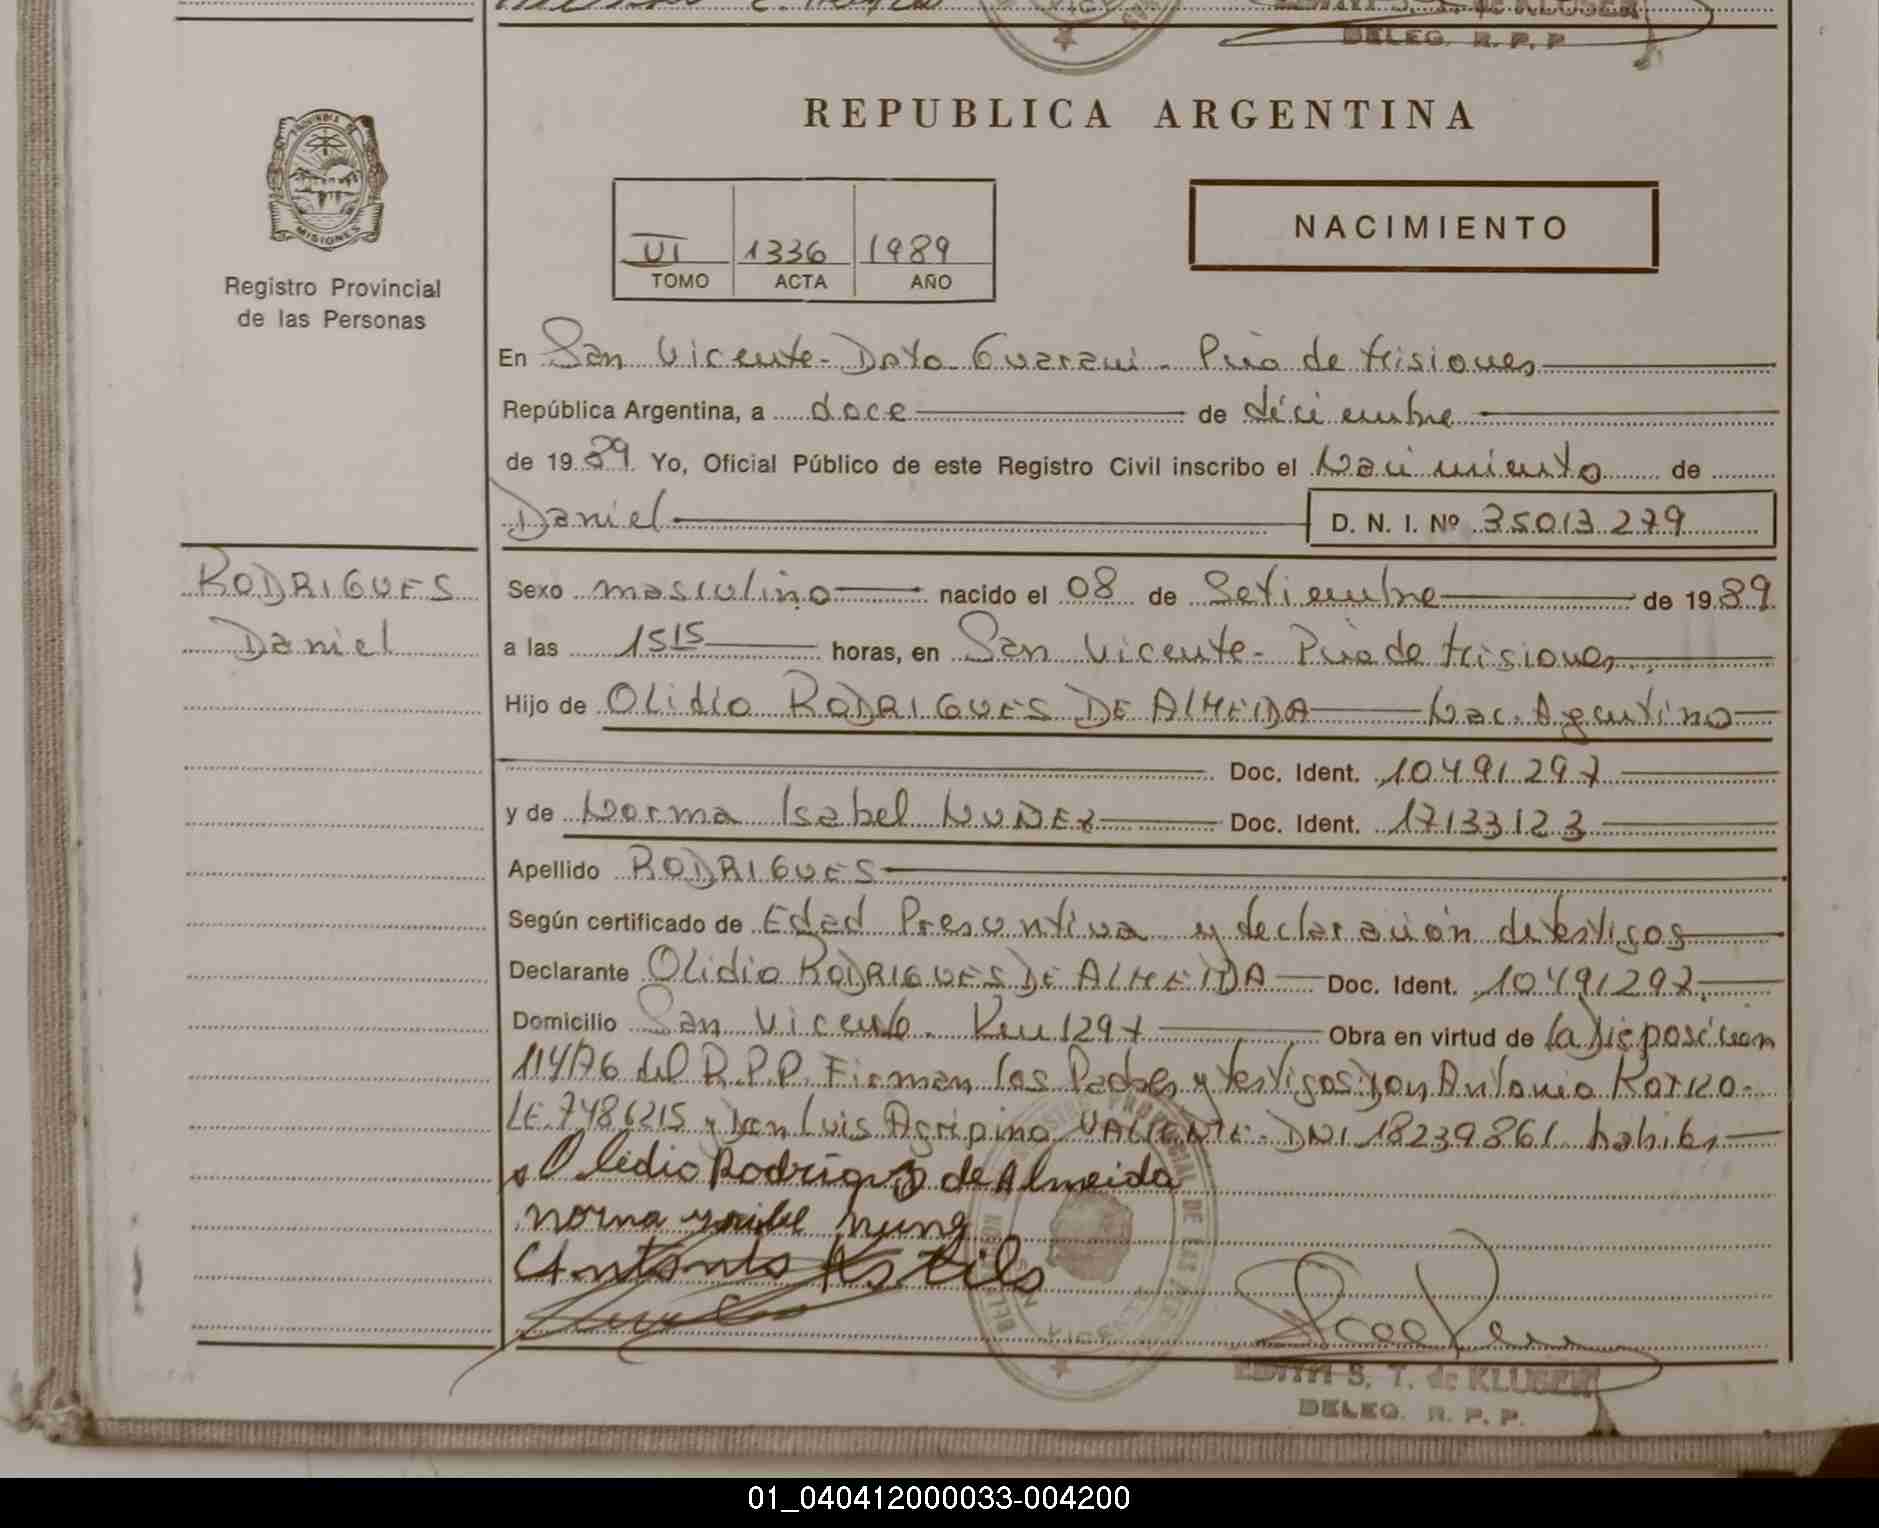 DELEG. R. P. P
REPUBLICA ARGENTINA
MISIONES
Registro Provincial
de las Personas
VI 1336 1989
TOMO ACTA AÑO
NACIMIENTO
En San Vicente - Dpto Guarani - Pcia de Misiones
República Argentina, a doce de diciembre
de 1989. Yo, Oficial Público de este Registro Civil inscribo el Nacimiento de
Daniel D. N. I. Nº 35013279
RODRIGUES
Daniel
Sexo masculino nacido el 08 de Setiembre de 1989
a las 1515 horas, en San Vicente - Pcia de Misiones
Hijo de Olidio RODRIGUES DE ALMEIDA Nac. Argentino
Doc. Ident. 10491297
y de Norma Isabel NUÑEZ Doc. Ident. 17133123
Apellido RODRIGUES
Según certificado de Edad Presuntiva y declaración de testigos
Declarante Olidio RODRIGUES DE ALMEIDA Doc. Ident. 10491297
Domicilio San Vicente - Km 1297 Obra en virtud de la Disposición
114/76 del R.P.P. Firman los Padres y testigos Don Antonio
LE 7486215 y Don Luis Agripino VALIENTE - DNI 18239861 habiles
Olidio Rodrigues de Almeida
norma
Antonio
EDITH S. T. de KLUSER
DELEG. R. P. P.
01_040412000033-004200